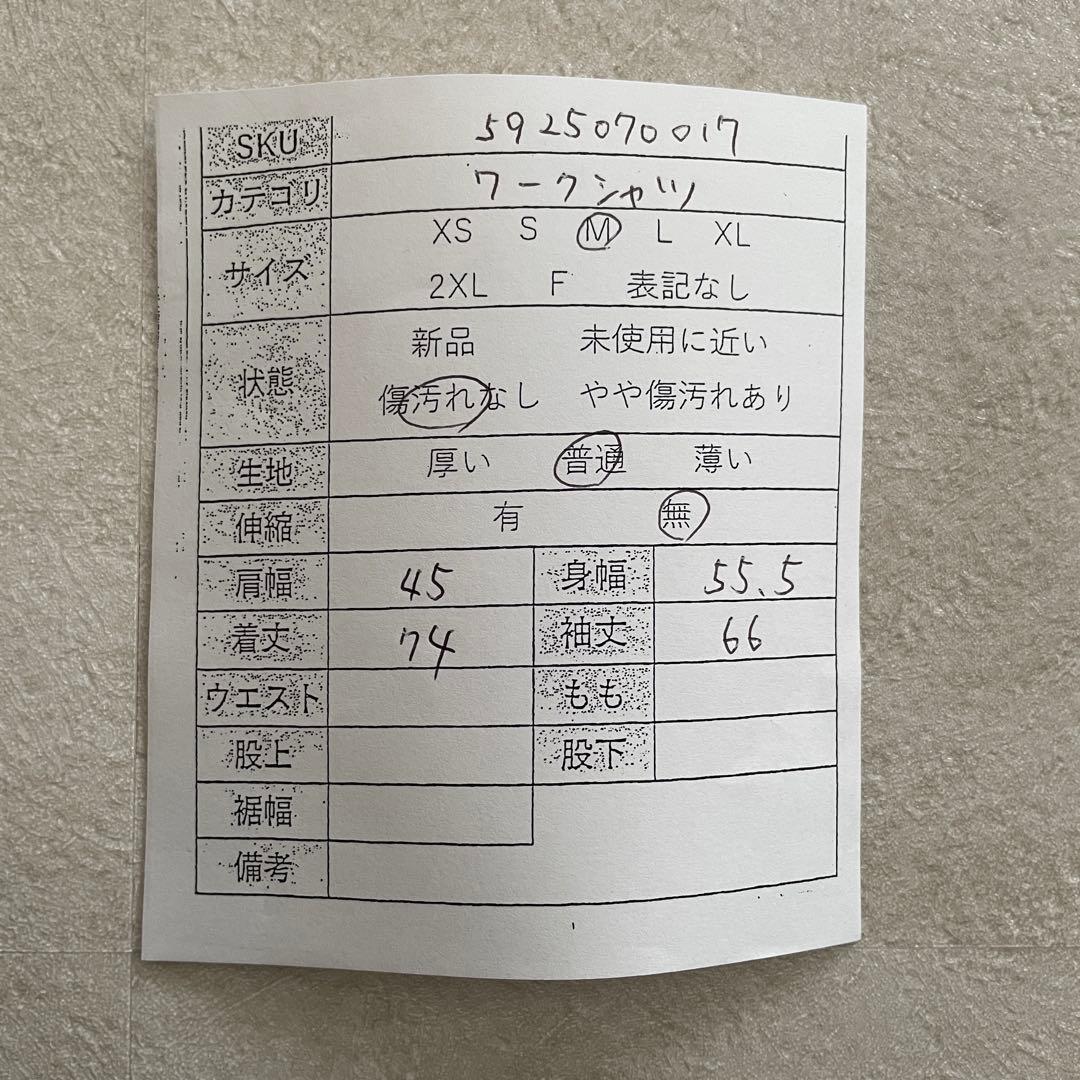 SKU 5925070017
カテゴリ ワークシャツ
サイズ XS S M L XL
2XL F 表記なし
状態 新品 未使用に近い
傷汚れなし やや傷汚れあり
生地 厚い 普通 薄い
伸縮 有 無
肩幅 45 身幅 55.5
着丈 74 袖丈 66
ウエスト もも
股上 股下
裾幅
備考